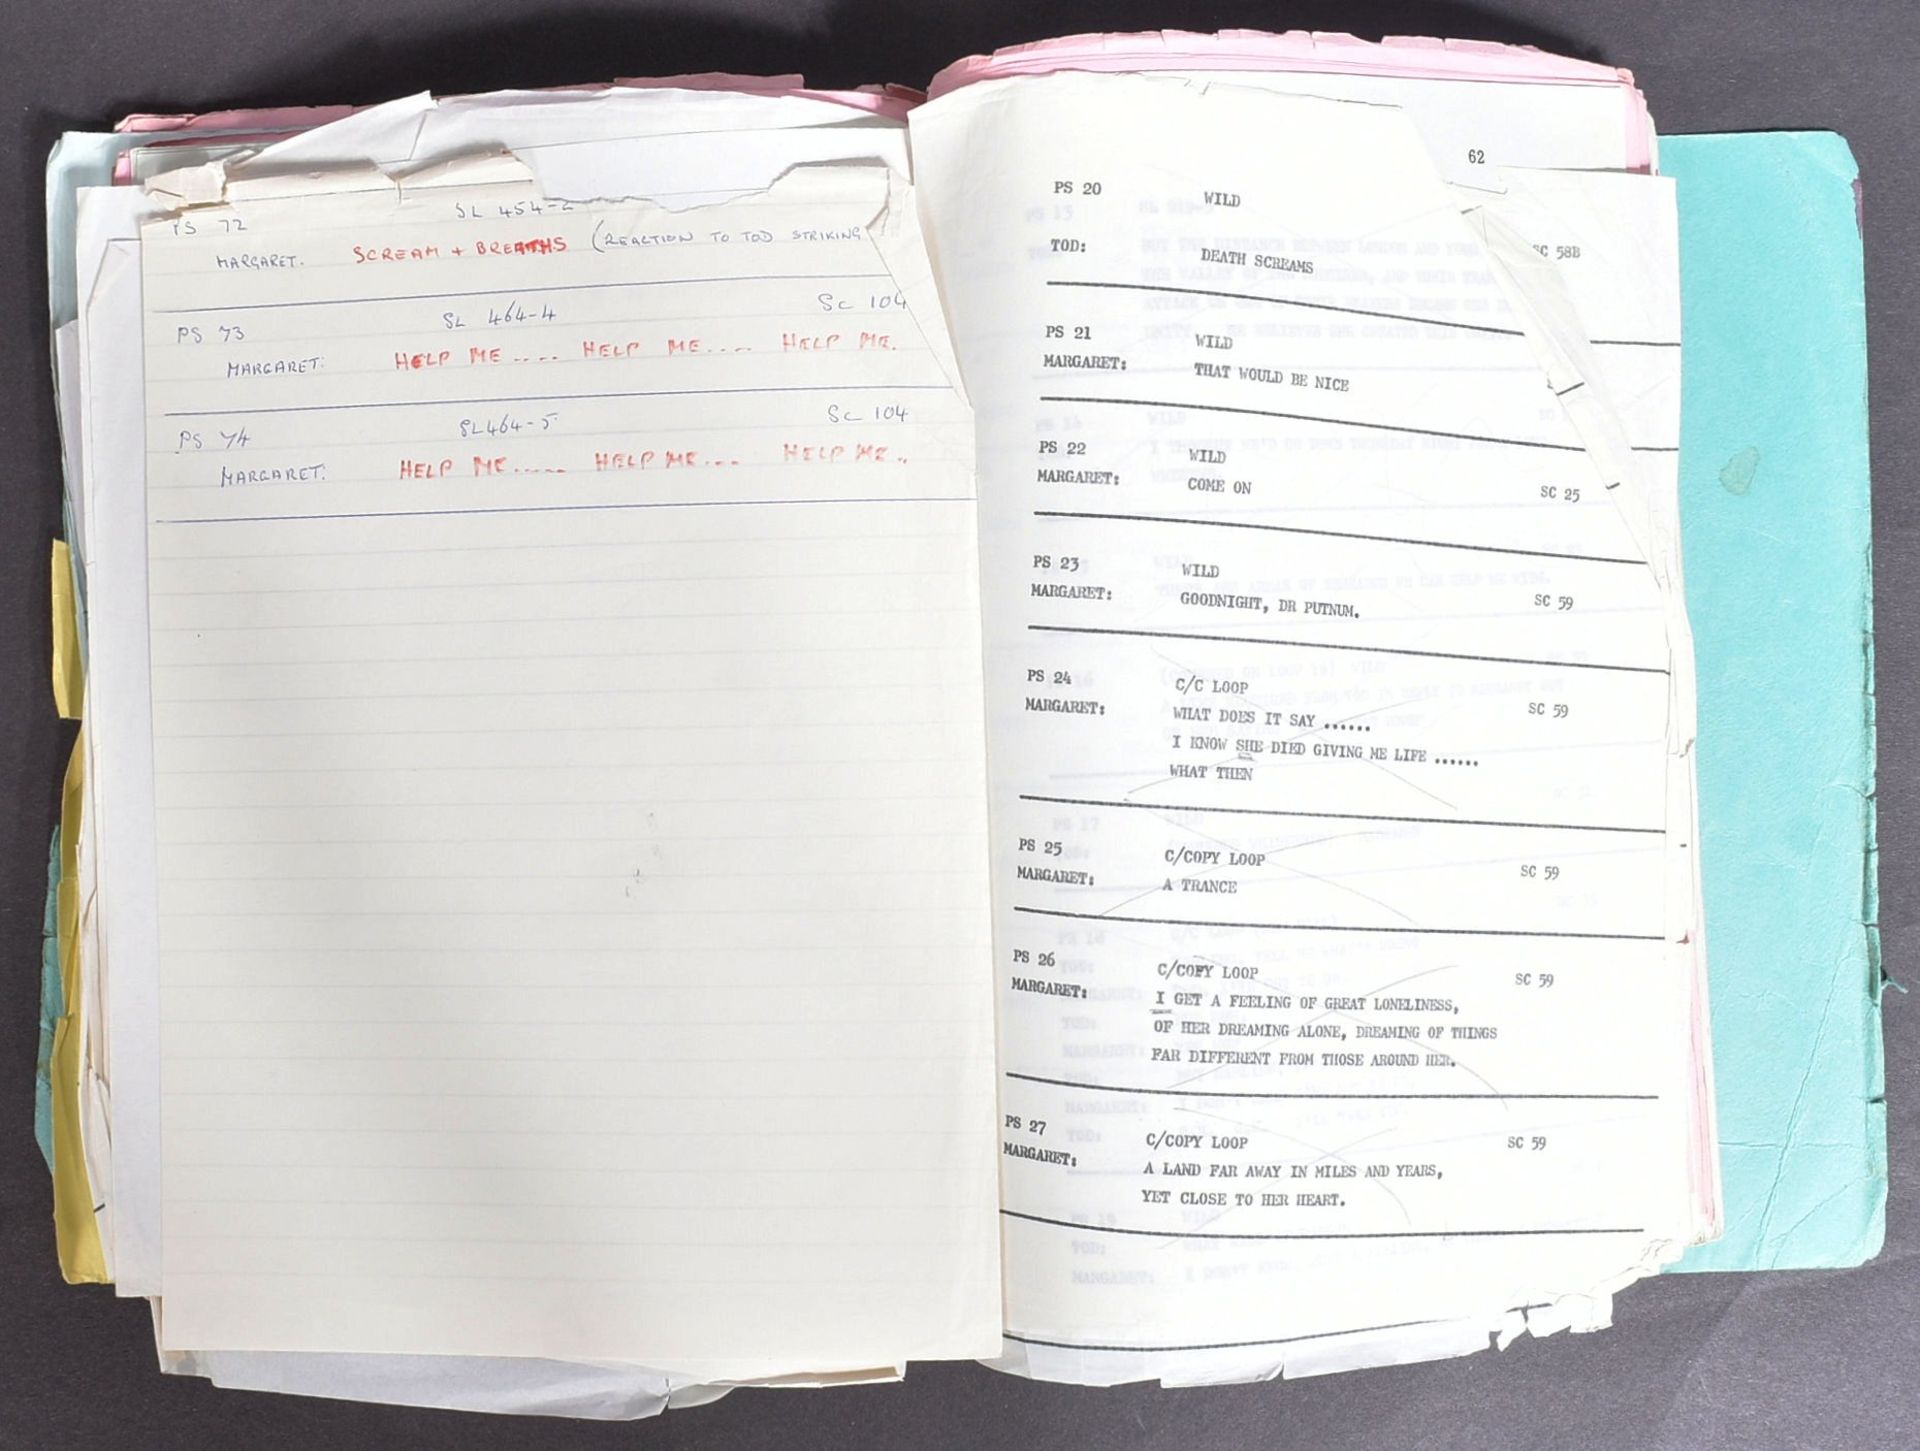 PS 72 SL 454-2
MARGARET. SCREAM + BREATHS (REACTION TO TOD STRIKING
PS 73 SL 464-4 SC 104
MARGARET: HELP ME .... HELP ME.... HELP ME.
PS 74 SL464-5 SC 104
MARGARET: HELP ME..... HELP ME... HELP ME..
62
PS 20 WILD
TOD: DEATH SCREAMS SC 58B
PS 21 WILD
MARGARET: THAT WOULD BE NICE
PS 22 WILD
MARGARET: COME ON SC 25
PS 23 WILD
MARGARET: GOODNIGHT, DR PUTNUM. SC 59
PS 24 C/C LOOP
MARGARET: WHAT DOES IT SAY ...... SC 59
I KNOW SHE DIED GIVING ME LIFE ......
WHAT THEN
PS 25 C/COPY LOOP SC 59
MARGARET: A TRANCE
PS 26 C/COPY LOOP SC 59
MARGARET: I GET A FEELING OF GREAT LONELINESS,
OF HER DREAMING ALONE, DREAMING OF THINGS
FAR DIFFERENT FROM THOSE AROUND HER.
PS 27 C/COPY LOOP SC 59
MARGARET: A LAND FAR AWAY IN MILES AND YEARS,
YET CLOSE TO HER HEART.